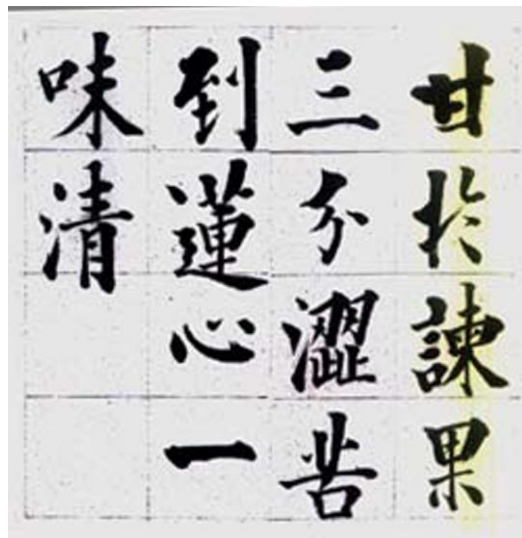 甘於諫果
三分澀苦
到蓮心一
味清